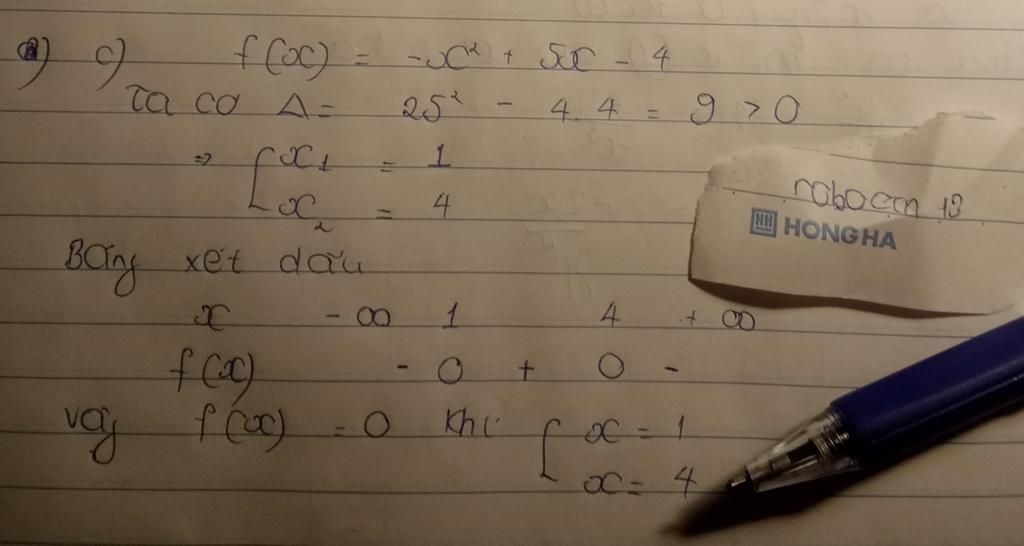 c) f(x) = -x² + 5x - 4
Ta co Δ = 25² - 4.4 = 9 > 0
⇒ [ x₁ = 1
x₂ = 4
nobocon 13
HH HONG HA
Bảng xét dấu
x -∞ 1 4 +∞
f(x) - 0 + 0 -
Vậy f(x) = 0 Khi [ x = 1
x = 4